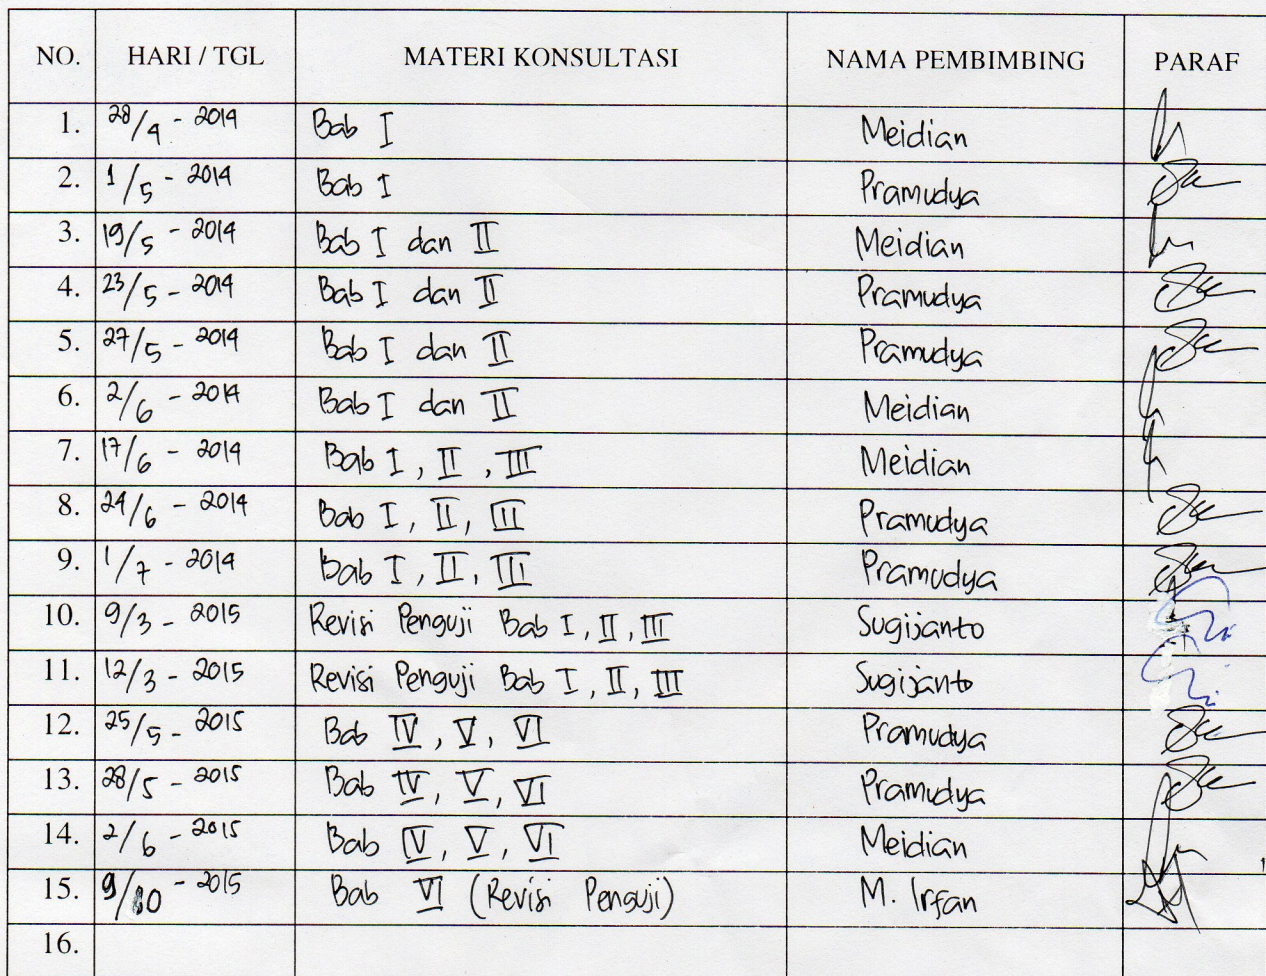 NO. HARI / TGL MATERI KONSULTASI NAMA PEMBIMBING PARAF
1. 28/4 - 2014 Bab I Meidian
2. 1/5 - 2014 Bab I Pramudya
3. 19/5 - 2014 Bab I dan II Meidian
4. 23/5 - 2014 Bab I dan II Pramudya
5. 27/5 - 2014 Bab I dan II Pramudya
6. 2/6 - 2014 Bab I dan II Meidian
7. 17/6 - 2014 Bab I, II, III Meidian
8. 24/6 - 2014 Bab I, II, III Pramudya
9. 1/7 - 2014 Bab I, II, III Pramudya
10. 9/3 - 2015 Revisi Penguji Bab I, II, III Sugijanto
11. 12/3 - 2015 Revisi Penguji Bab I, II, III Sugijanto
12. 25/5 - 2015 Bab IV, V, VI Pramudya
13. 28/5 - 2015 Bab IV, V, VI Pramudya
14. 2/6 - 2015 Bab IV, V, VI Meidian
15. 9/10 - 2015 Bab VI (Revisi Penguji) M. Irfan
16.